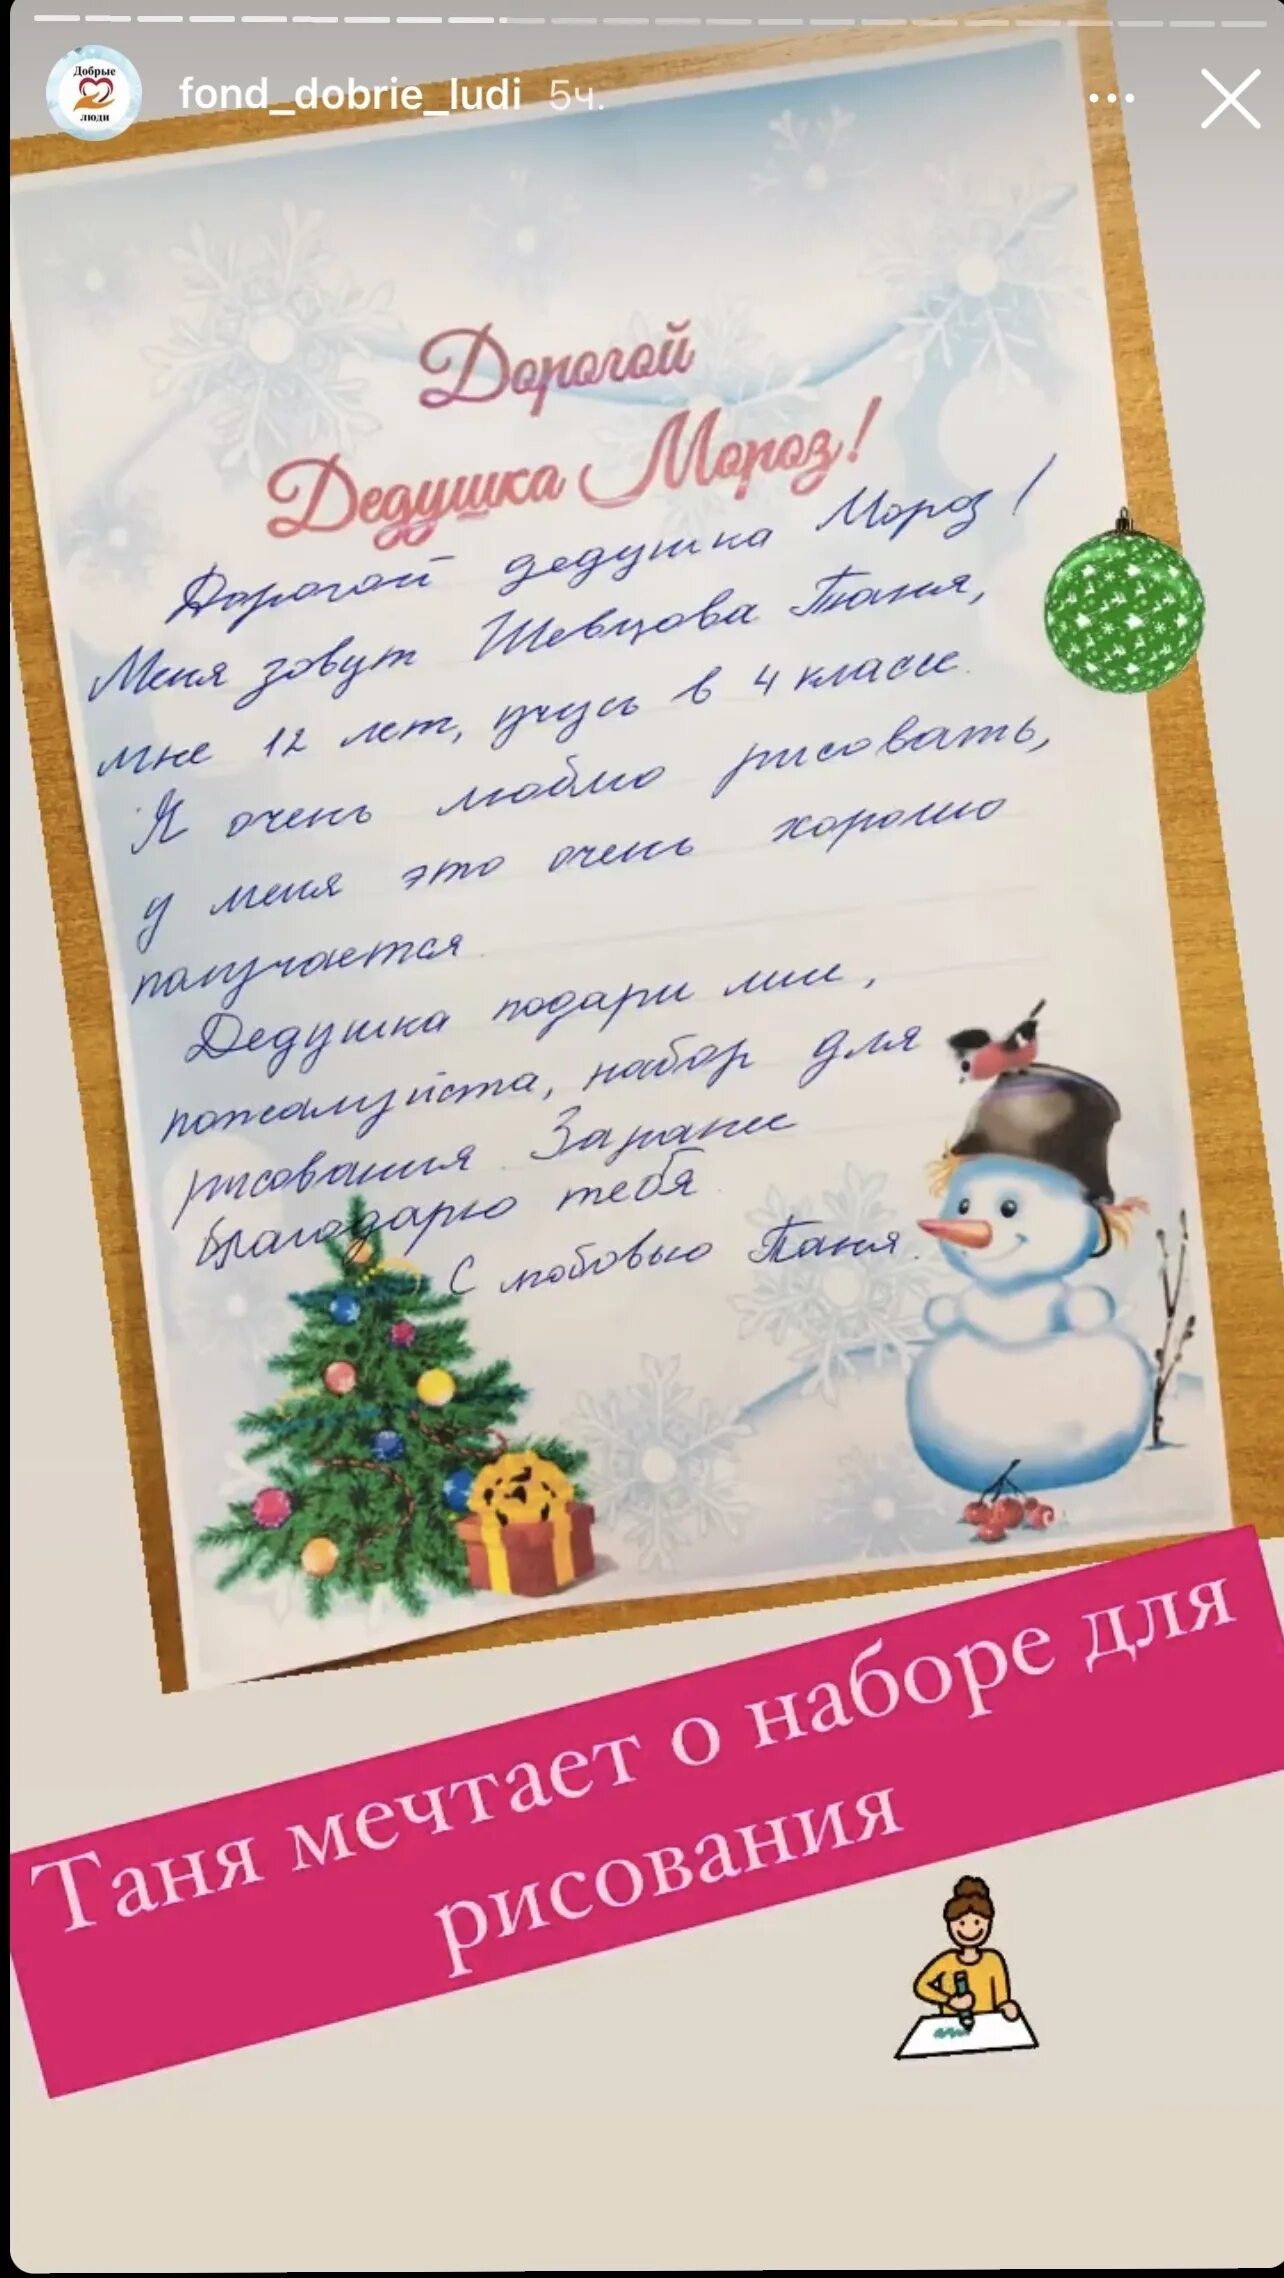 Добрые
люди
fond_dobrie_ludi 5ч.
Дорогой
Дедушка Мороз!
Дорогой дедушка Мороз!
Меня зовут Шевцова Таня,
мне 12 лет, учусь в 4 классе.
Я очень люблю рисовать,
у меня это очень хорошо
получается.
Дедушка подари мне,
пожалуйста, набор для
рисования. Заранее
благодарю тебя.
С любовью Таня.
Таня мечтает о наборе для
рисования